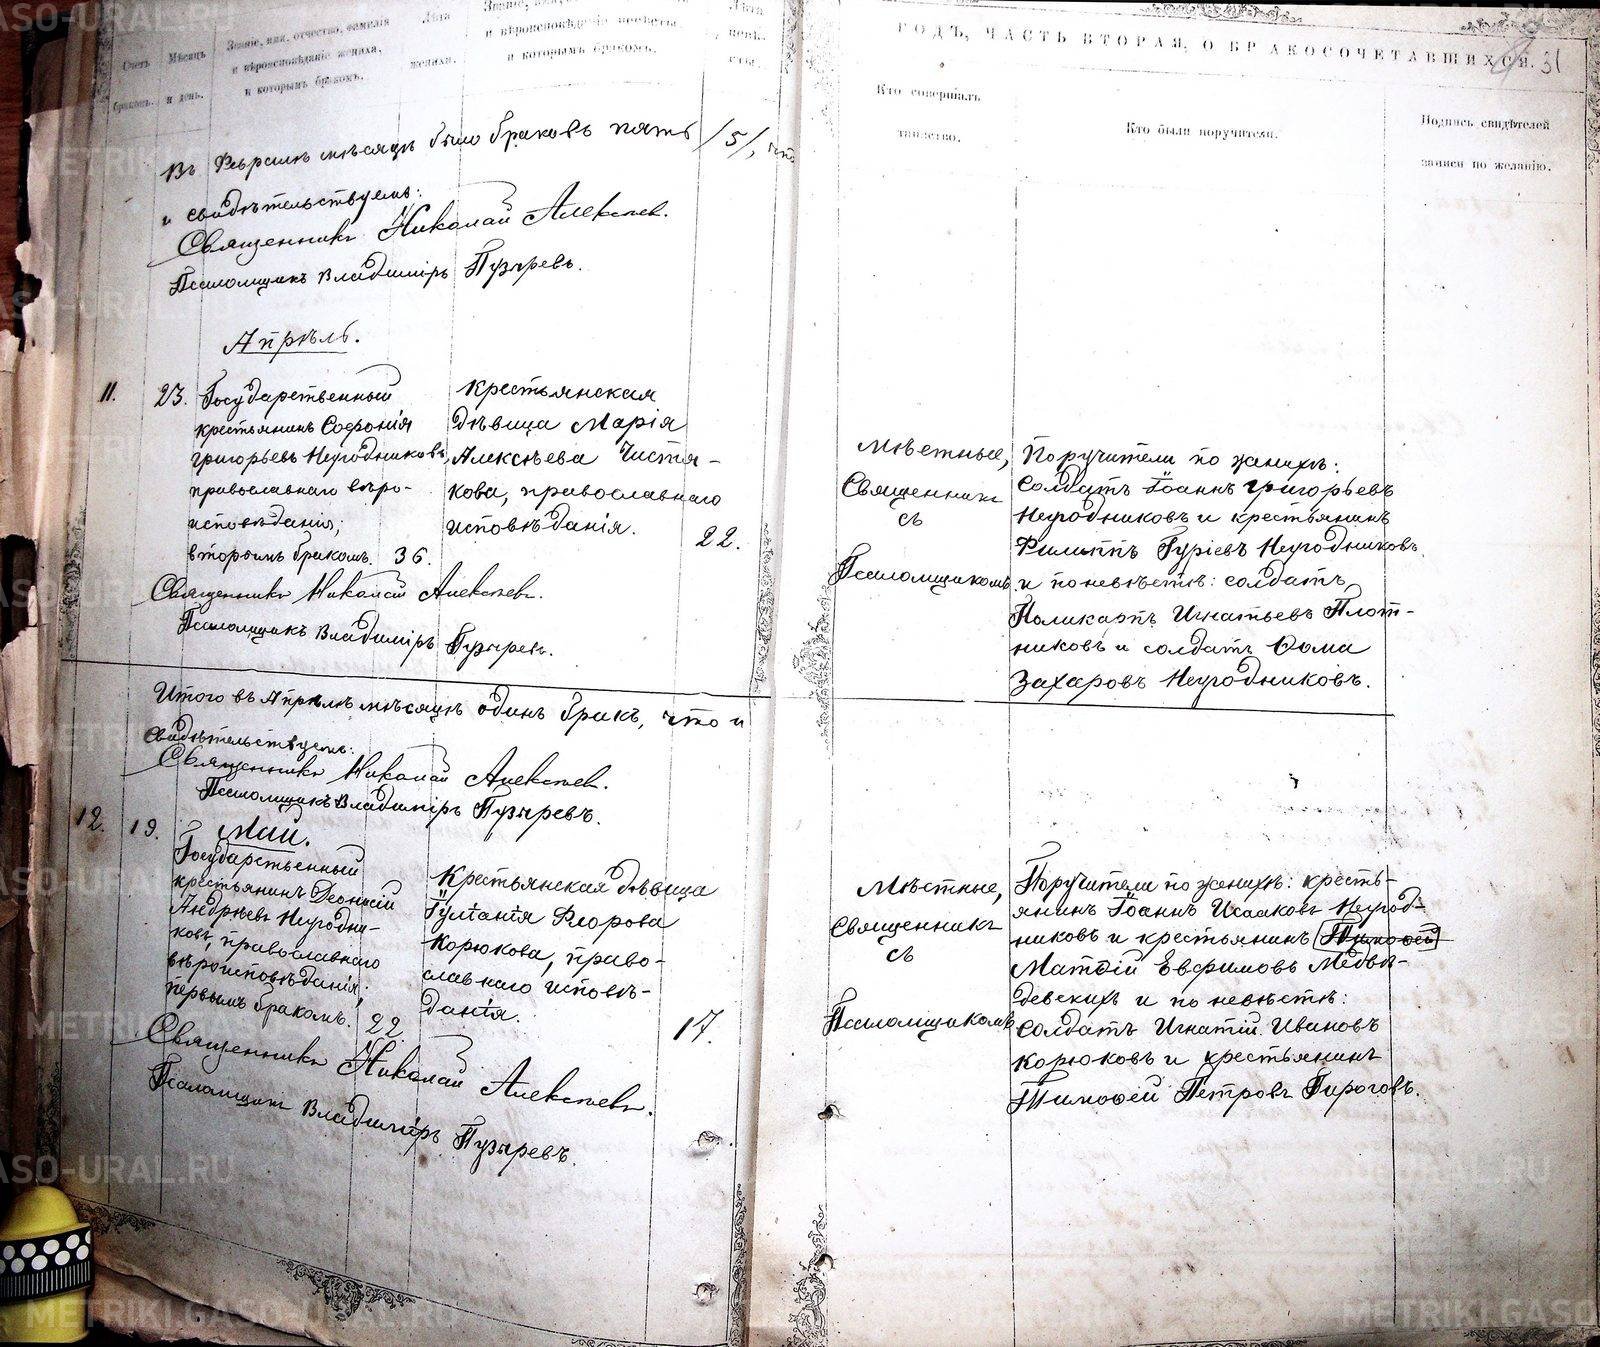 Счетъ браковъ.
Мѣсяцъ и день.
Званіе, имя, отчество, фамилія
и вѣроисповѣданіе жениха,
и которымъ бракомъ.
Лѣта
жениха.
и вѣроисповѣданіе невѣсты,
и которымъ бракомъ.
Лѣта
невѣ-
сты.
Въ Февралѣ мѣсяцѣ было браковъ пять /5/, что
и свидѣтельствуемъ:
Священникъ Николай Алексѣев.
Псаломщикъ Владиміръ Пузыревъ.
Апрѣль.
11.
23.
Государственный
крестьянинъ Софронія
Григорьевъ Негодниковъ,
православнаго вѣро-
исповѣданія;
вторымъ бракомъ. 36.
Крестьянская
дѣвица Марія
Алексѣева Чистя-
кова, православнаго
исповѣданія. 22.
Священникъ Николай Алексѣевъ.
Псаломщикъ Владиміръ Пузыревъ.
Итого въ Апрѣлѣ мѣсяцѣ одинъ бракъ, что и
свидѣтельствуемъ:
Священникъ Николай Алексѣев.
Псаломщикъ Владиміръ Пузыревъ.
12.
19.
Май.
Государственный
крестьянинъ Деонисій
Андрѣевъ Негодни-
ковъ, православнаго
вѣроисповѣданія;
первымъ бракомъ. 22
Крестьянская дѣвица
Іулітанія Ѳеорова
Корюкова, право-
славнаго исповѣ-
данія. 17.
Священникъ Николай Алексѣевъ.
Псаломщикъ Владиміръ Пузыревъ.
ГОДЪ, ЧАСТЬ ВТОРАЯ, О БРАКОСОЧЕТАВШИХСЯ. 31
Кто совершалъ
таинство.
Кто были поручители.
Подпись свидѣтелей
записи по желанію.
Мѣстные,
Священникъ
съ
Псаломщикомъ.
Поручители по женихѣ:
солдатъ Іоаннъ Григорьевъ
Негодниковъ и крестьянинъ
Филиппъ Гуріевъ Негодниковъ
и по невѣстѣ: солдатъ
Поликарпъ Игнатьевъ Плот-
никовъ и солдатъ Ѳома
Захаровъ Негодниковъ.
Мѣстные,
Священникъ
съ
Псаломщикомъ
Поручители по женихѣ: кресть-
янинъ Іоаннъ Исааковъ Негод-
никовъ и крестьянинъ Тимоѳей
Матѳій Евфимовъ Медвѣ-
девскихъ и по невѣстѣ:
солдатъ Игнатій Ивановъ
Корюковъ и крестьянинъ
Тимоѳей Петровъ Пироговъ.
METRIKI.GASO-URAL.RU